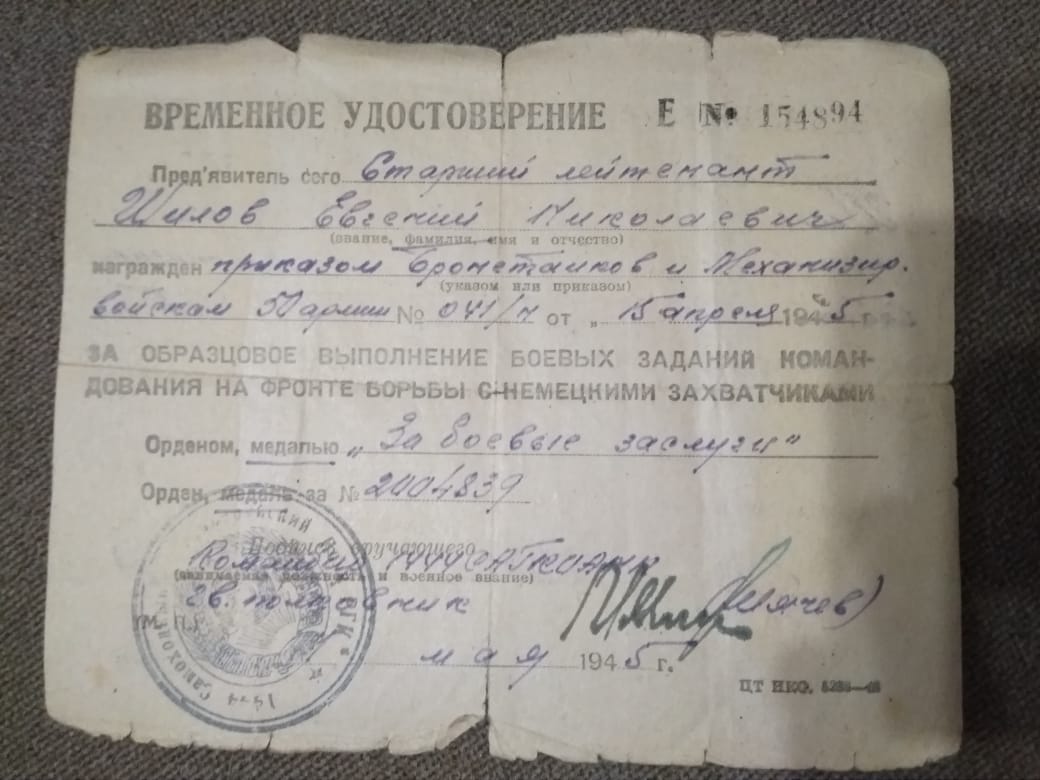 ВРЕМЕННОЕ УДОСТОВЕРЕНИЕ Е № 154894
Пред'явитель сего Старший лейтенант
Шилов Евгений Николаевич
(звание, фамилия, имя и отчество)
награжден приказом Бронетанков и Механизир.
(указом или приказом)
войскам 50 армии № 041/н от „15 апреля 1945 г.
ЗА ОБРАЗЦОВОЕ ВЫПОЛНЕНИЕ БОЕВЫХ ЗАДАНИЙ КОМАН-
ДОВАНИЯ НА ФРОНТЕ БОРЬБЫ С НЕМЕЦКИМИ ЗАХВАТЧИКАМИ
Орденом, медалью „За боевые заслуги"
Орден, медаль за № 2004839
Подпись вручающего
Командир 1444 САПКОАКК
(занимаемая должность и военное звание)
Гв. полковник
(М. П.)
мая 1945 г.
ЦТ НКО.
Самоходный